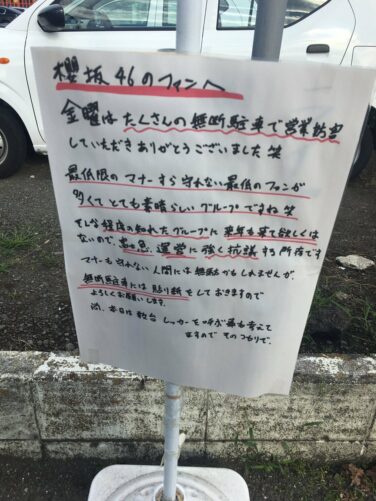 櫻坂46のファンへ
金曜はたくさんの無断駐車で営業妨害
していただきありがとうございました笑
最低限のマナーすら守れない最低のファンが
多くてとても素晴らしいグループですね笑
そんな程度の知れたグループに来年も来て欲しくは
ないので、富士急、運営に強く抗議する所存です
マナーも守れない人間には無駄かもしれませんが、
無断駐車には貼り紙をしておきますので
よろしくお願いします。
尚、本日は数台レッカーを呼ぶ事も考えて
ますので そのつもりで。